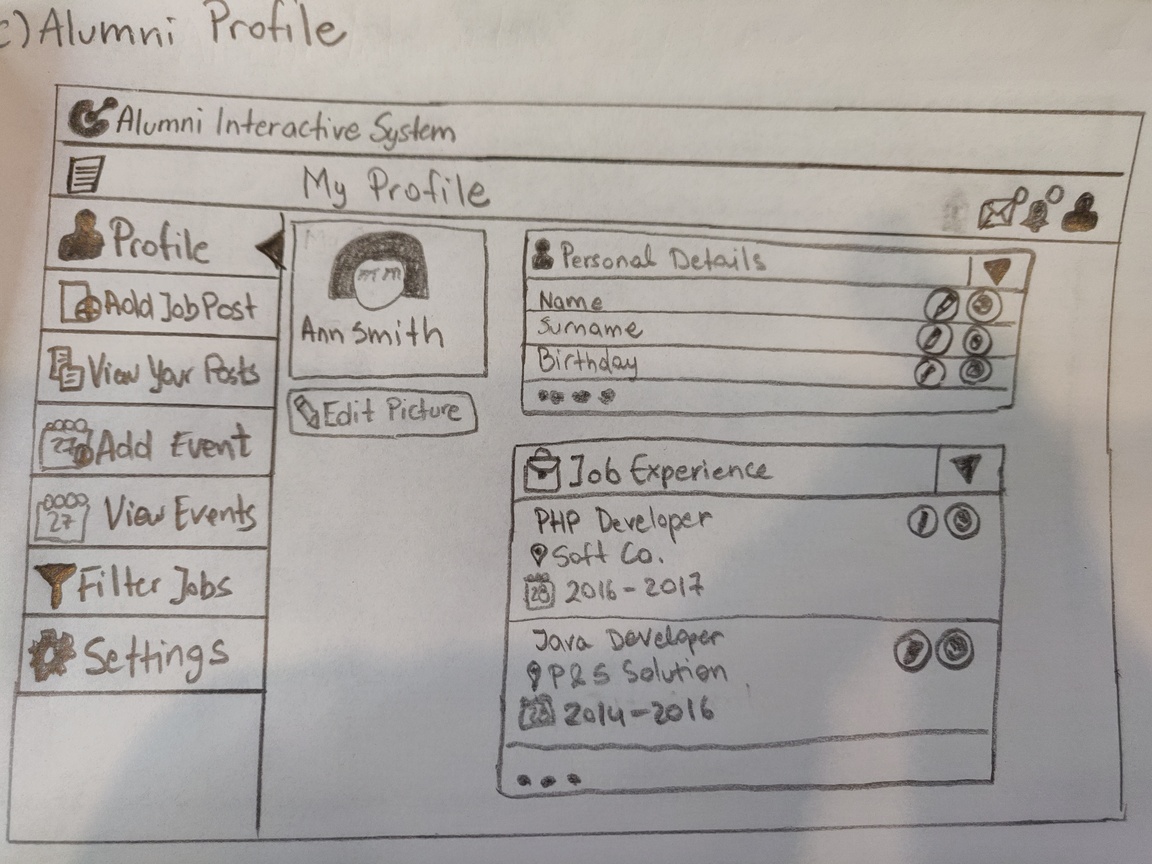 c) Alumni Profile
Alumni Interactive System
My Profile
Profile
Add Job Post
View Your Posts
Add Event
27
View Events
27
Filter Jobs
Settings
Ann Smith
Edit Picture
Personal Details
Name
Surname
Birthday
Job Experience
PHP Developer
Soft Co.
28 2016-2017
Java Developer
P&S Solution
2014-2016